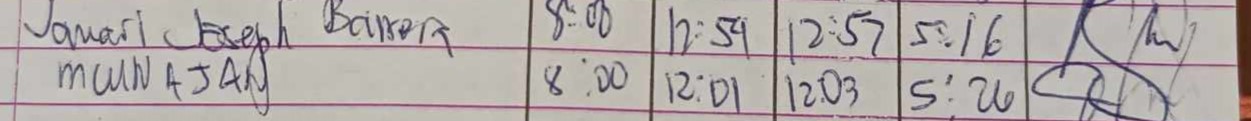 Jamari Joseph Barrera 8:00 12:54 12:57 5:16
MUNAJAN 8:00 12:01 12:03 5:26